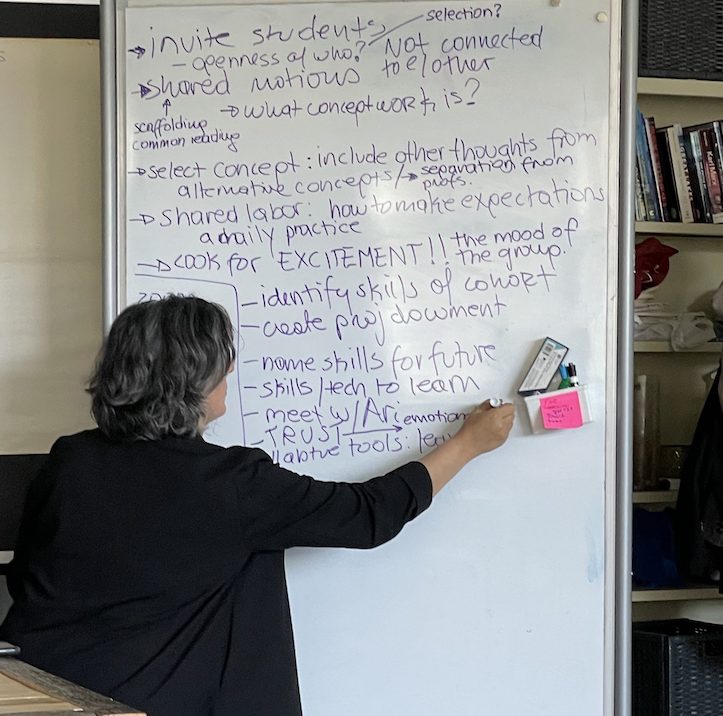 selection?
→ invite students
- openness of who? Not connected
→ shared notions to e/other
→ what conceptwork is?
scaffolding
common reading
→ select concept: include other thoughts from
alternative concepts/→ separation from
profs.
→ shared labor: how to make expectations
a daily practice
→ LOOK for EXCITEMENT!! the mood of
the group.
- identify skills of cohort
- create proj document
- name skills for future
- skills/tech to learn
- meet w/ Ari emotion
- TRUST
tools: